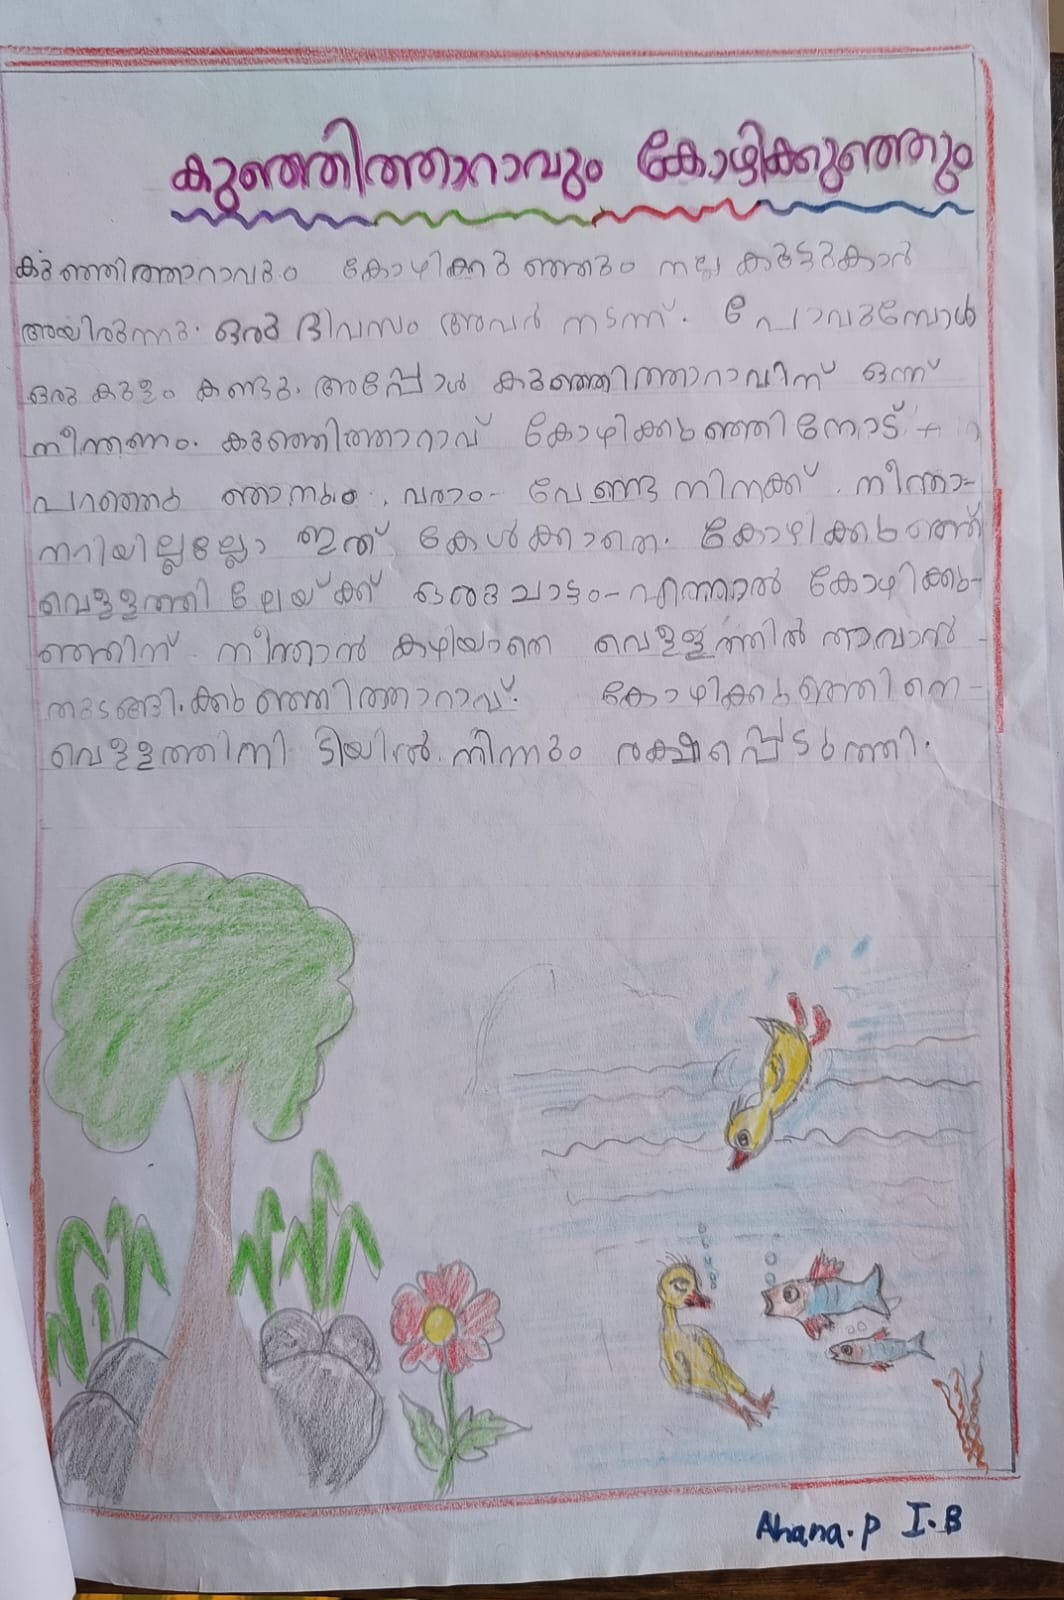 കുഞ്ഞിത്താറാവും കോഴിക്കുഞ്ഞും
കുഞ്ഞിത്താറാവും കോഴിക്കുഞ്ഞും നല്ല കൂട്ടുകാർ
അയിരുന്നു. ഒരു ദിവസം അവർ നടന്ന്. പോവുമ്പോൾ
ഒരു കുളം കണ്ടു. അപ്പോൾ കുഞ്ഞിത്താറാവിന് ഒന്ന്
നീന്തണം. കുഞ്ഞിത്താറാവ് കോഴിക്കുഞ്ഞിനോട്
പറഞ്ഞു ഞാനും വരാം- വേണ്ട നിനക്ക് നീന്താ-
നറിയില്ലല്ലോ ഇത് കേൾക്കാതെ. കോഴിക്കുഞ്ഞ്
വെള്ളത്തിലേയ്ക്ക് ഒരുചാട്ടം- എന്നാൽ കോഴിക്കു-
ഞ്ഞിന് നീന്താൻ കഴിയാതെ വെള്ളത്തിൽ താവാൻ -
തുടങ്ങി. ക്കുഞ്ഞിത്താറാവ്. കോഴിക്കുഞ്ഞിനെ-
വെള്ളത്തിനി ടിയിൽ നിന്നും രക്ഷപ്പെടുത്തി.
Ahana.P I.B